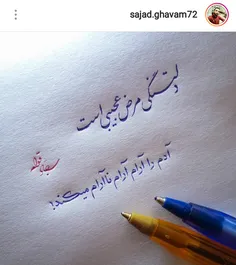 sajad.ghavam72
دلتنگی مرض عجیبی است
آدم را آرام آرام ناآرام میکند!